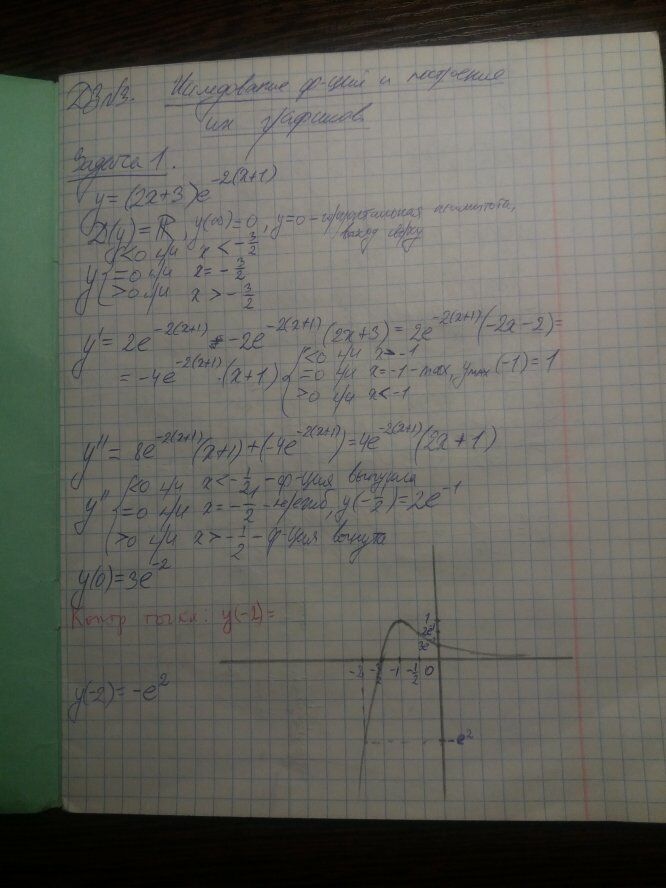 ДЗ №3. Исследование ф-ций и построение
их графиков.
Задача 1.
y = (2x+3)e^{-2(x+1)}
D(y) = ℝ, y(∞) = 0, y=0 - горизонтальная асимптота,
выход сверху
y { <0 при x < -3/2
=0 при x = -3/2
>0 при x > -3/2
y' = 2e^{-2(x+1)} -2e^{-2(x+1)}(2x+3) = 2e^{-2(x+1)}(-2x-2) =
= -4e^{-2(x+1)}·(x+1) { <0 при x > -1
=0 при x = -1 - max, y_{max}(-1) = 1
>0 при x < -1
y'' = 8e^{-2(x+1)}(x+1) + (-4e^{-2(x+1)}) = 4e^{-2(x+1)}(2x+1)
y'' { <0 при x < -1/2 - ф-ция выпукла
=0 при x = -1/2 - перегиб, y(-1/2) = 2e^{-1}
>0 при x > -1/2 - ф-ция вогнута
y(0) = 3e^{-2}
Контр точка: y(-2) =
y(-2) = -e^2
1
2e^{-1}
3e^{-2}
-2 -3/2 -1 -1/2 0
-e^2